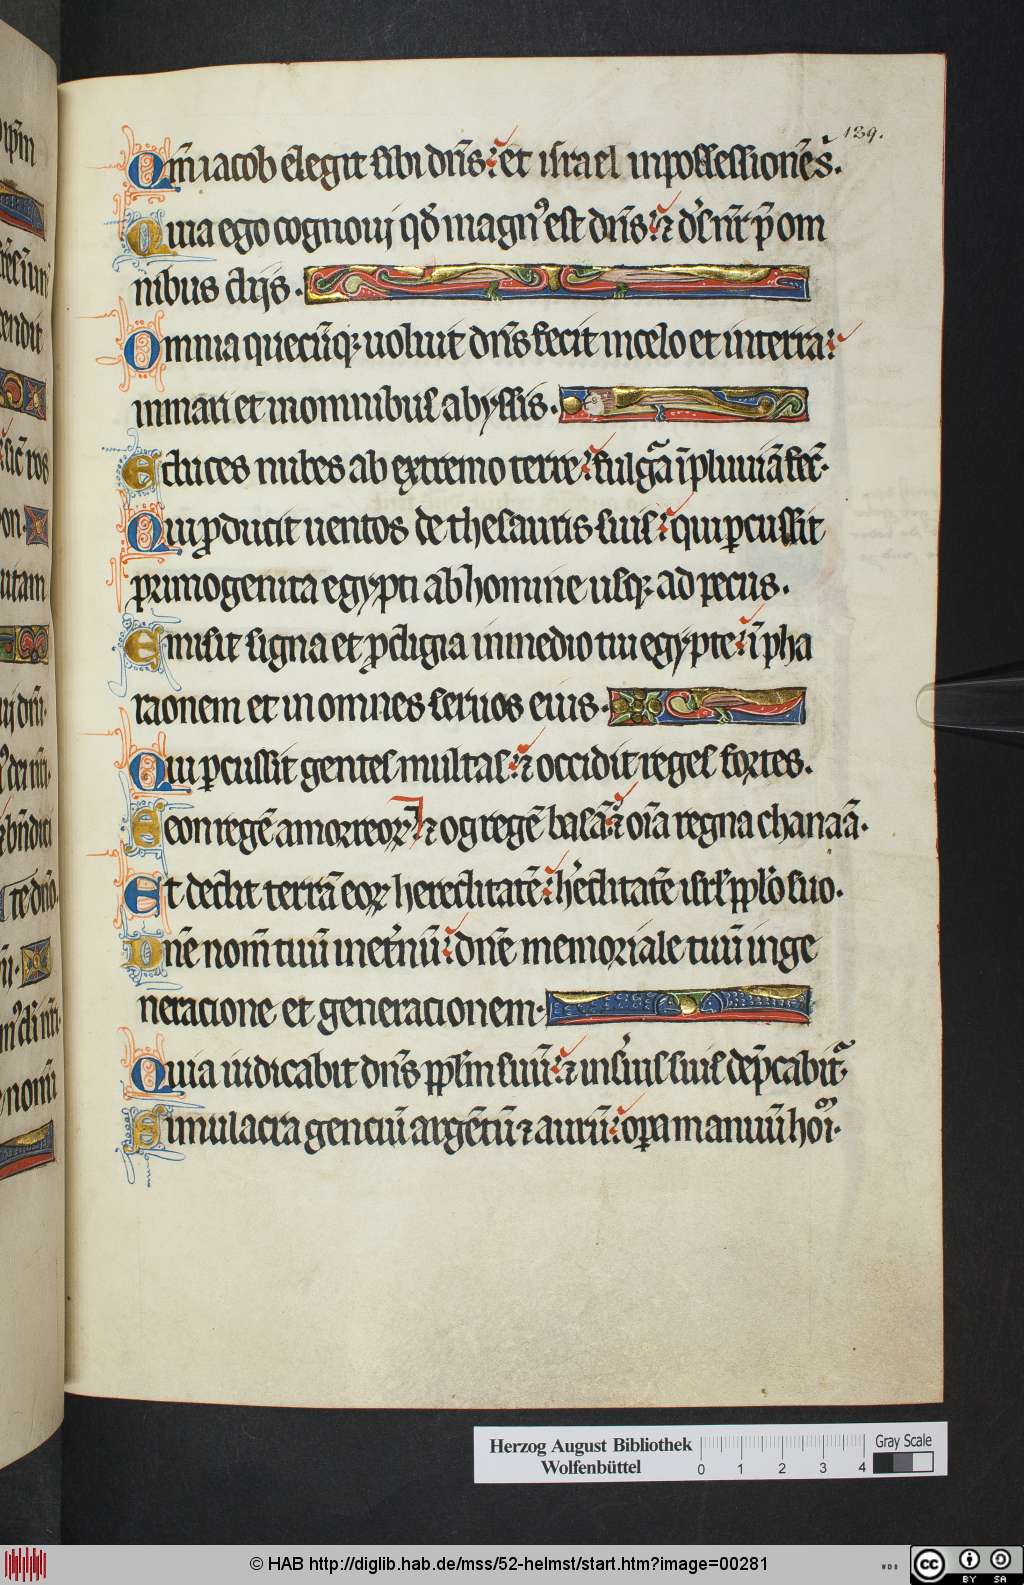 139.
Qm̄ iacob elegit sibi dn̄s: et israel in possessionē s̄.
Quia ego cognovi qd̄ magnꝰ est dn̄s: ⁊ dc̄ nr̄ p̄ om
nibus diis.
Omnia quecūqꝫ voluit dn̄s fecit in celo et in terra:
in mari et in omnibus abyssis.
Educes nubes ab extremo terre: fulgᷓa ī pluviā fec̄.
Qui ꝓducit ventos de thesauris suis: qui ꝑcussit
primogenita egypti ab homine usqꝫ ad pecus.
Emisit signa et ꝓdigia in medio tui egypte: ī pha
raonem et in omnes servos eius.
Qui ꝑcussit gentes multas: ⁊ occidit reges fortes.
Seon regē amorreoꝝ ⁊ og regē basā: ⁊ oīa regna chanaā.
Et dedit terrā eoꝝ hereditatē: hēditatē isrl̄ ppl̄o suo.
Dn̄e nom̄ tuū in et̄nū: dn̄e memoriale tuū in ge
neracione et generacionem.
Quia iudicabit dn̄s ppl̄m suū: ⁊ in s̄vis suis dep̄cabit᷑
Simulacra genciū argētū ⁊ aurū: oꝑa manuū hoī.
Herzog August Bibliothek
Wolfenbüttel
0 1 2 3 4
Gray Scale
© HAB http://diglib.hab.de/mss/52-helmst/start.htm?image=00281
WDB
cc BY SA